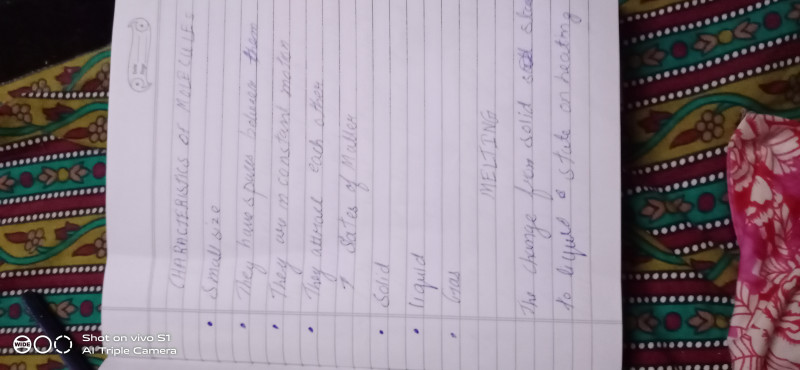 CHARACTERISTICS OF MOLECULES
• Small size
• They have spaces between them
• They are in constant motion
• They attract each other
→ States of Matter
• Solid
• liquid
• Gas
MELTING
The change from solid state
to liquid state on heating
WIDE
Shot on vivo S1
AI Triple Camera